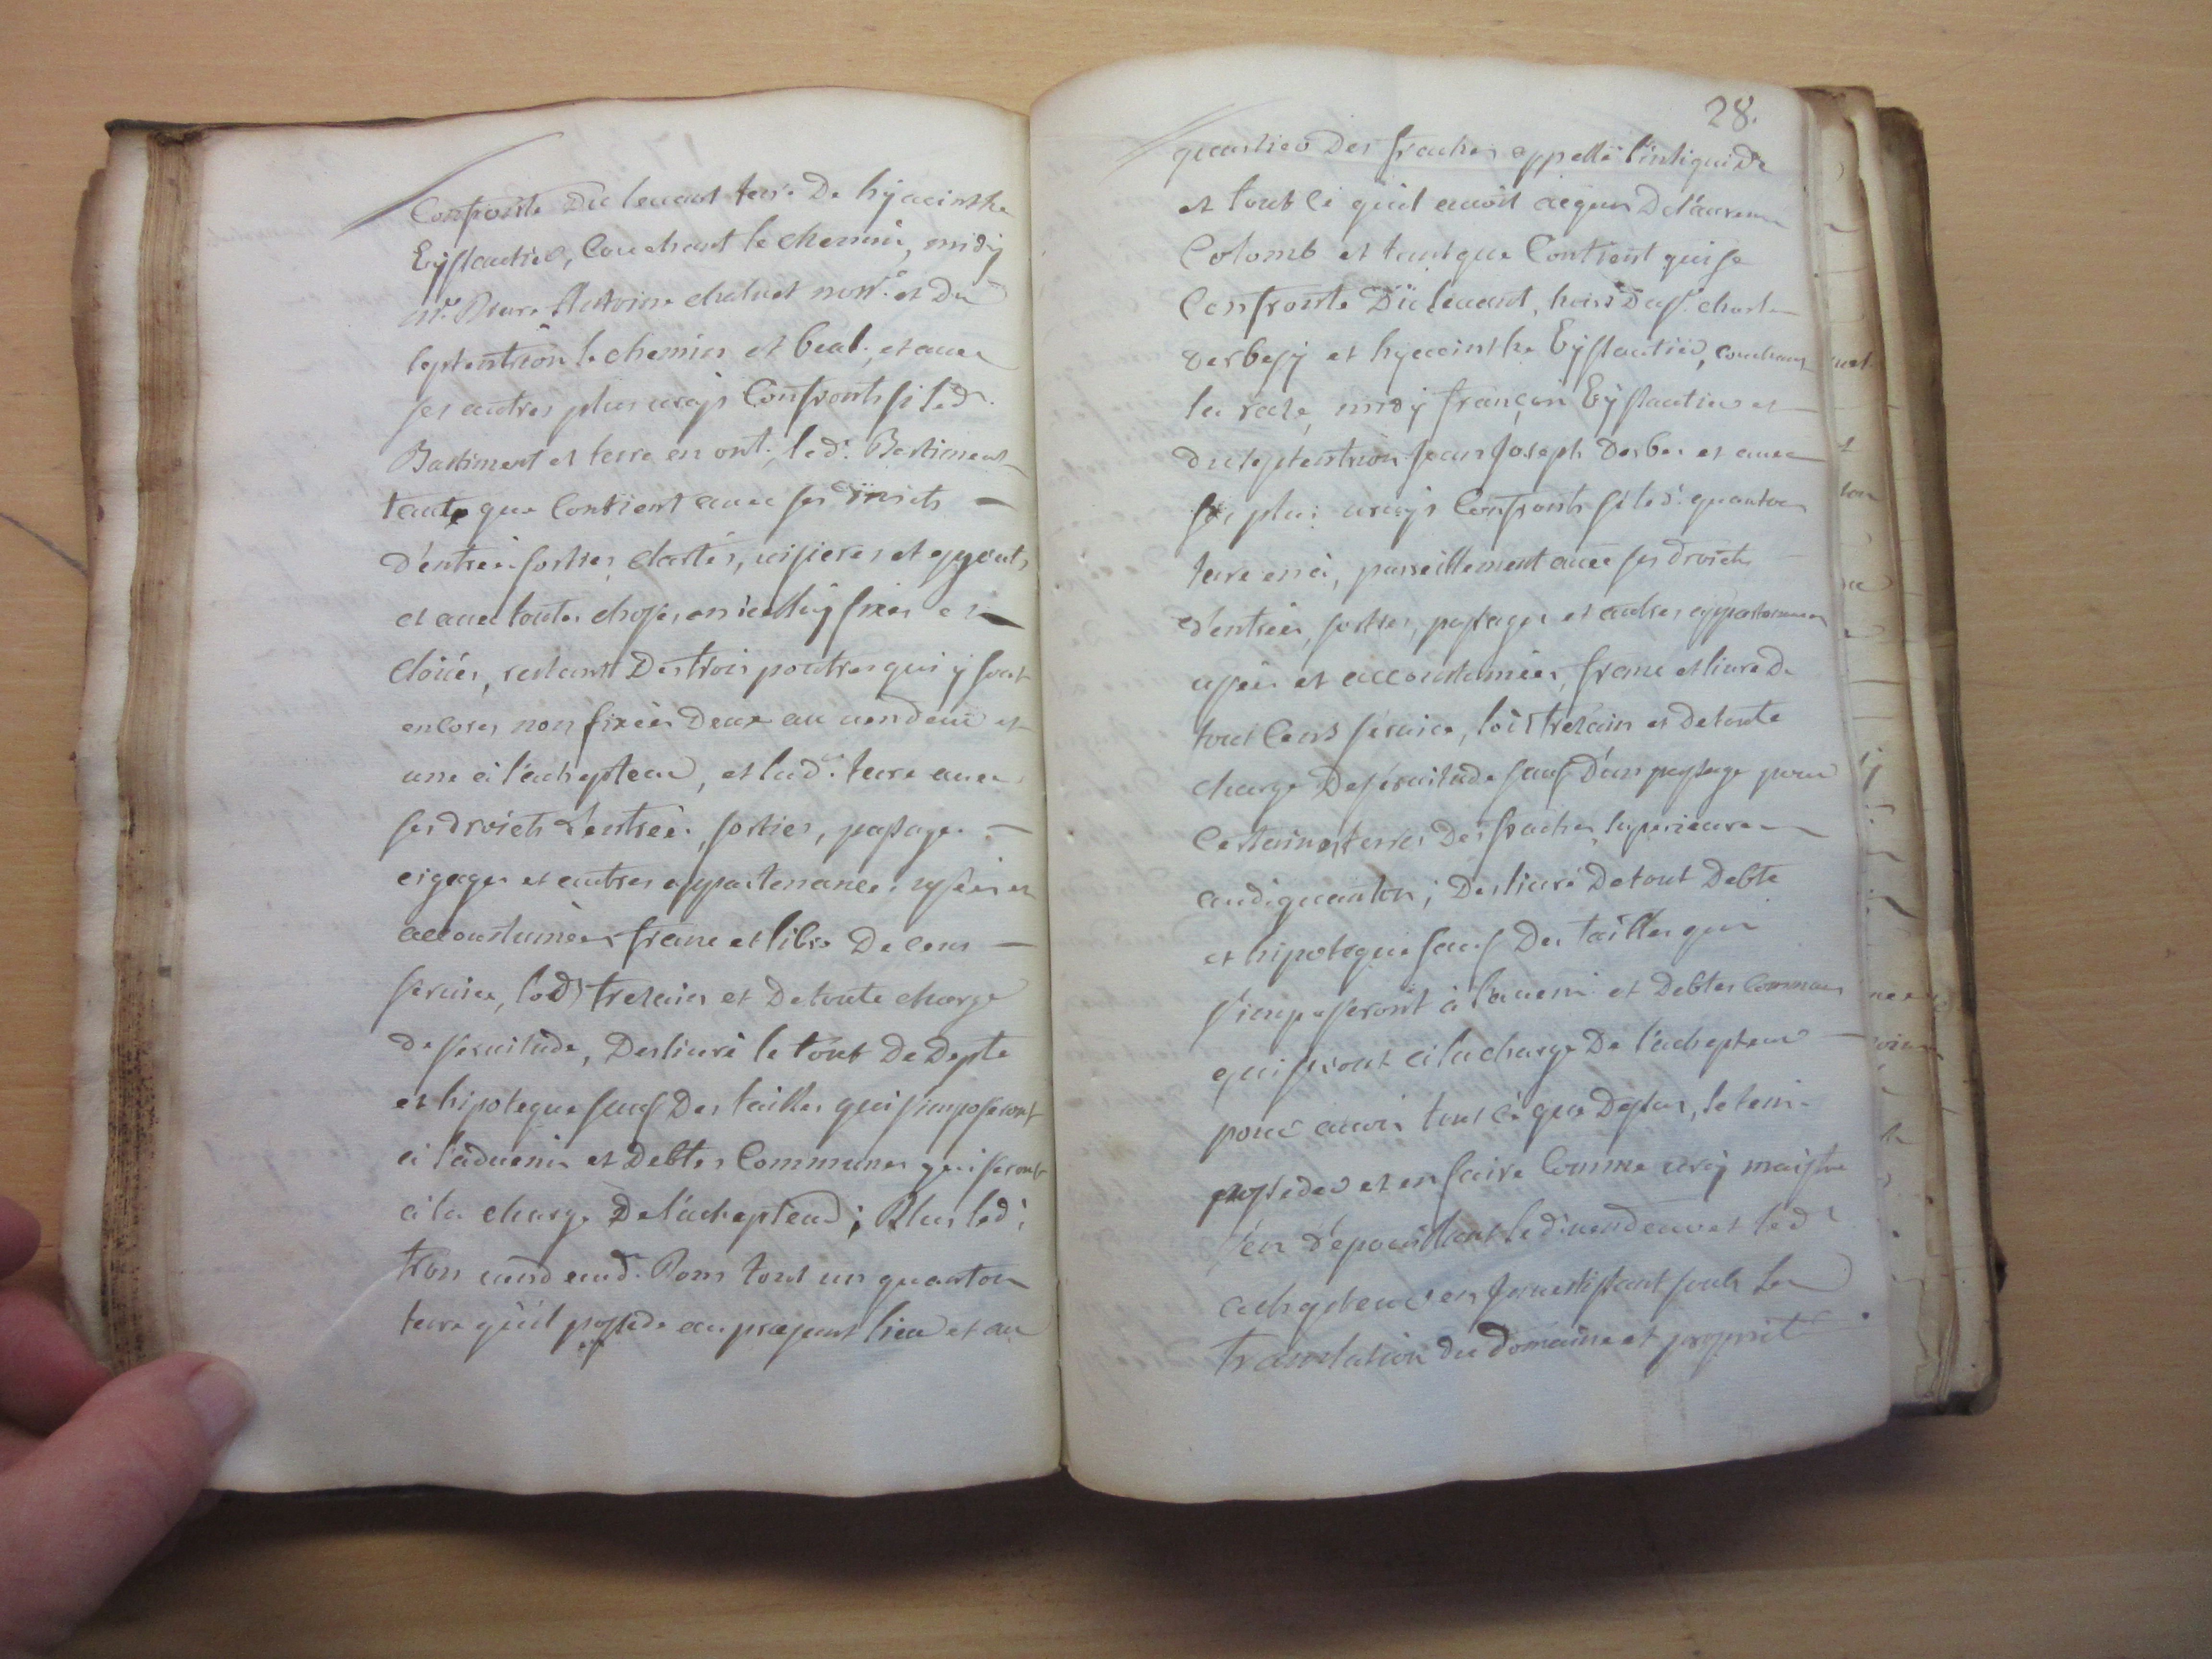 Confronte Du levant terre De hÿacinthe
Eÿssautier, Couchant le chemin, midÿ
Mr. Pierre Antoine chaluet nore. et Du
septentrion le chemin et beal, et avec
ses autres plus vrays Confronts si led.
Bastiment et terre en ont, led. Bastiment
tant que Contient avec ses droits
d'entrée sorties clartés, visieres et egouts
et avec toutes choses en icelluy fixes et
cloüés, restant Des trois poutres qui ÿ sont
encores non fixées Deux au vendeur et
une a l'achepteur, et lad. terre avec
ses droicts d'entrée, sorties, passages
eigages et autres appartenances usées et
accoustumées franc et libre De cens
service, lods trezains et De toute charge
De servitude, Deslivré le tout De Depte
et hipoteque sauf Des tailles qui s'imposeront
a l'advenir et Debtes Communes qui seront
a la charge De l'achepteur; Plus led.
tron vend aud. Pons tout un quanton
terre qu'il possede au present lieu et au
28.
quartier Des fraches appellé
et tout ce qu'il avoit acquis De Laurens
Colomb et tant que Contient qui se
Confronte Du levant, hoirs De Sr. charles
Derbesÿ et hyacinthe Eÿssautier, couchant
la raze, midÿ françois Eÿssautier et
du septentrion Jean Joseph Derbes et avec
ses plus vrays Confronts si led. quanton
terre en a, pareillement avec ses droicts
d'entrées, sorties, passages et autres appartenances
usées et accoutumées, franc et livre De
tout Cens service, lods trezain et De toute
charge De servitude sauf D'un passage pour
Certaines terres Des fraches superieures
audi quanton; Deslivré De tout Debte
et hipoteque sauf Des tailles qui
s'imposeront à l'avenir et Debtes Communes
qui seront a la charge De l'achepteur
pour avoir tout ce que Dessus, le tenir
posseder et en faire Comme vray maistre
s'en dépouillant led. vendeur et led.
achepteur en investissant soubs la
translation du domaine et proprieté